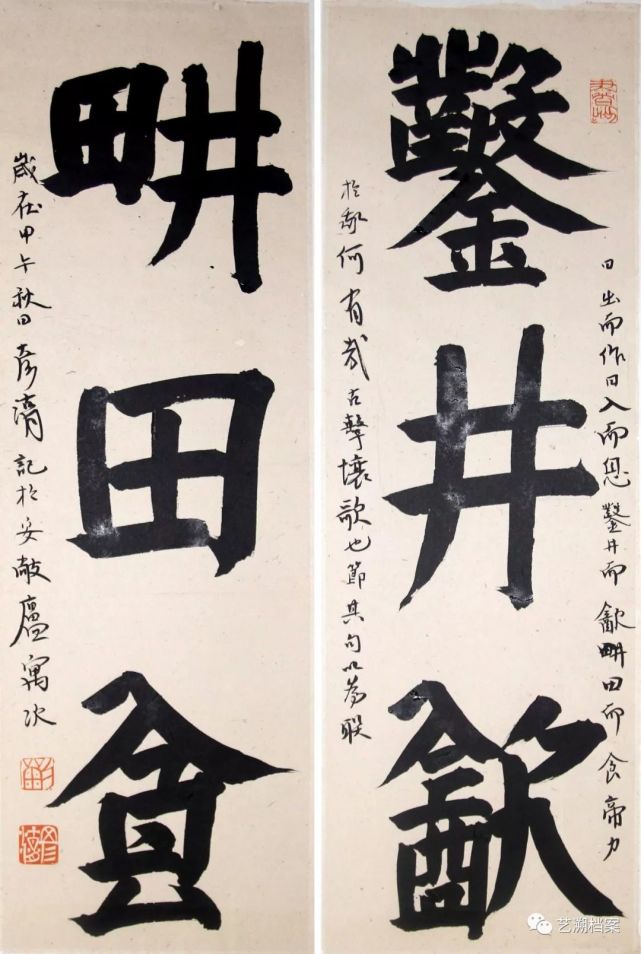 鑿井㱃
日出而作日入而息鑿井而㱃畊田而食帝力
於我何有哉古擊壤歌也節其句以為联
畊田食
歲在甲午秋日彦湑記於安敝廬寓次
艺溯档案